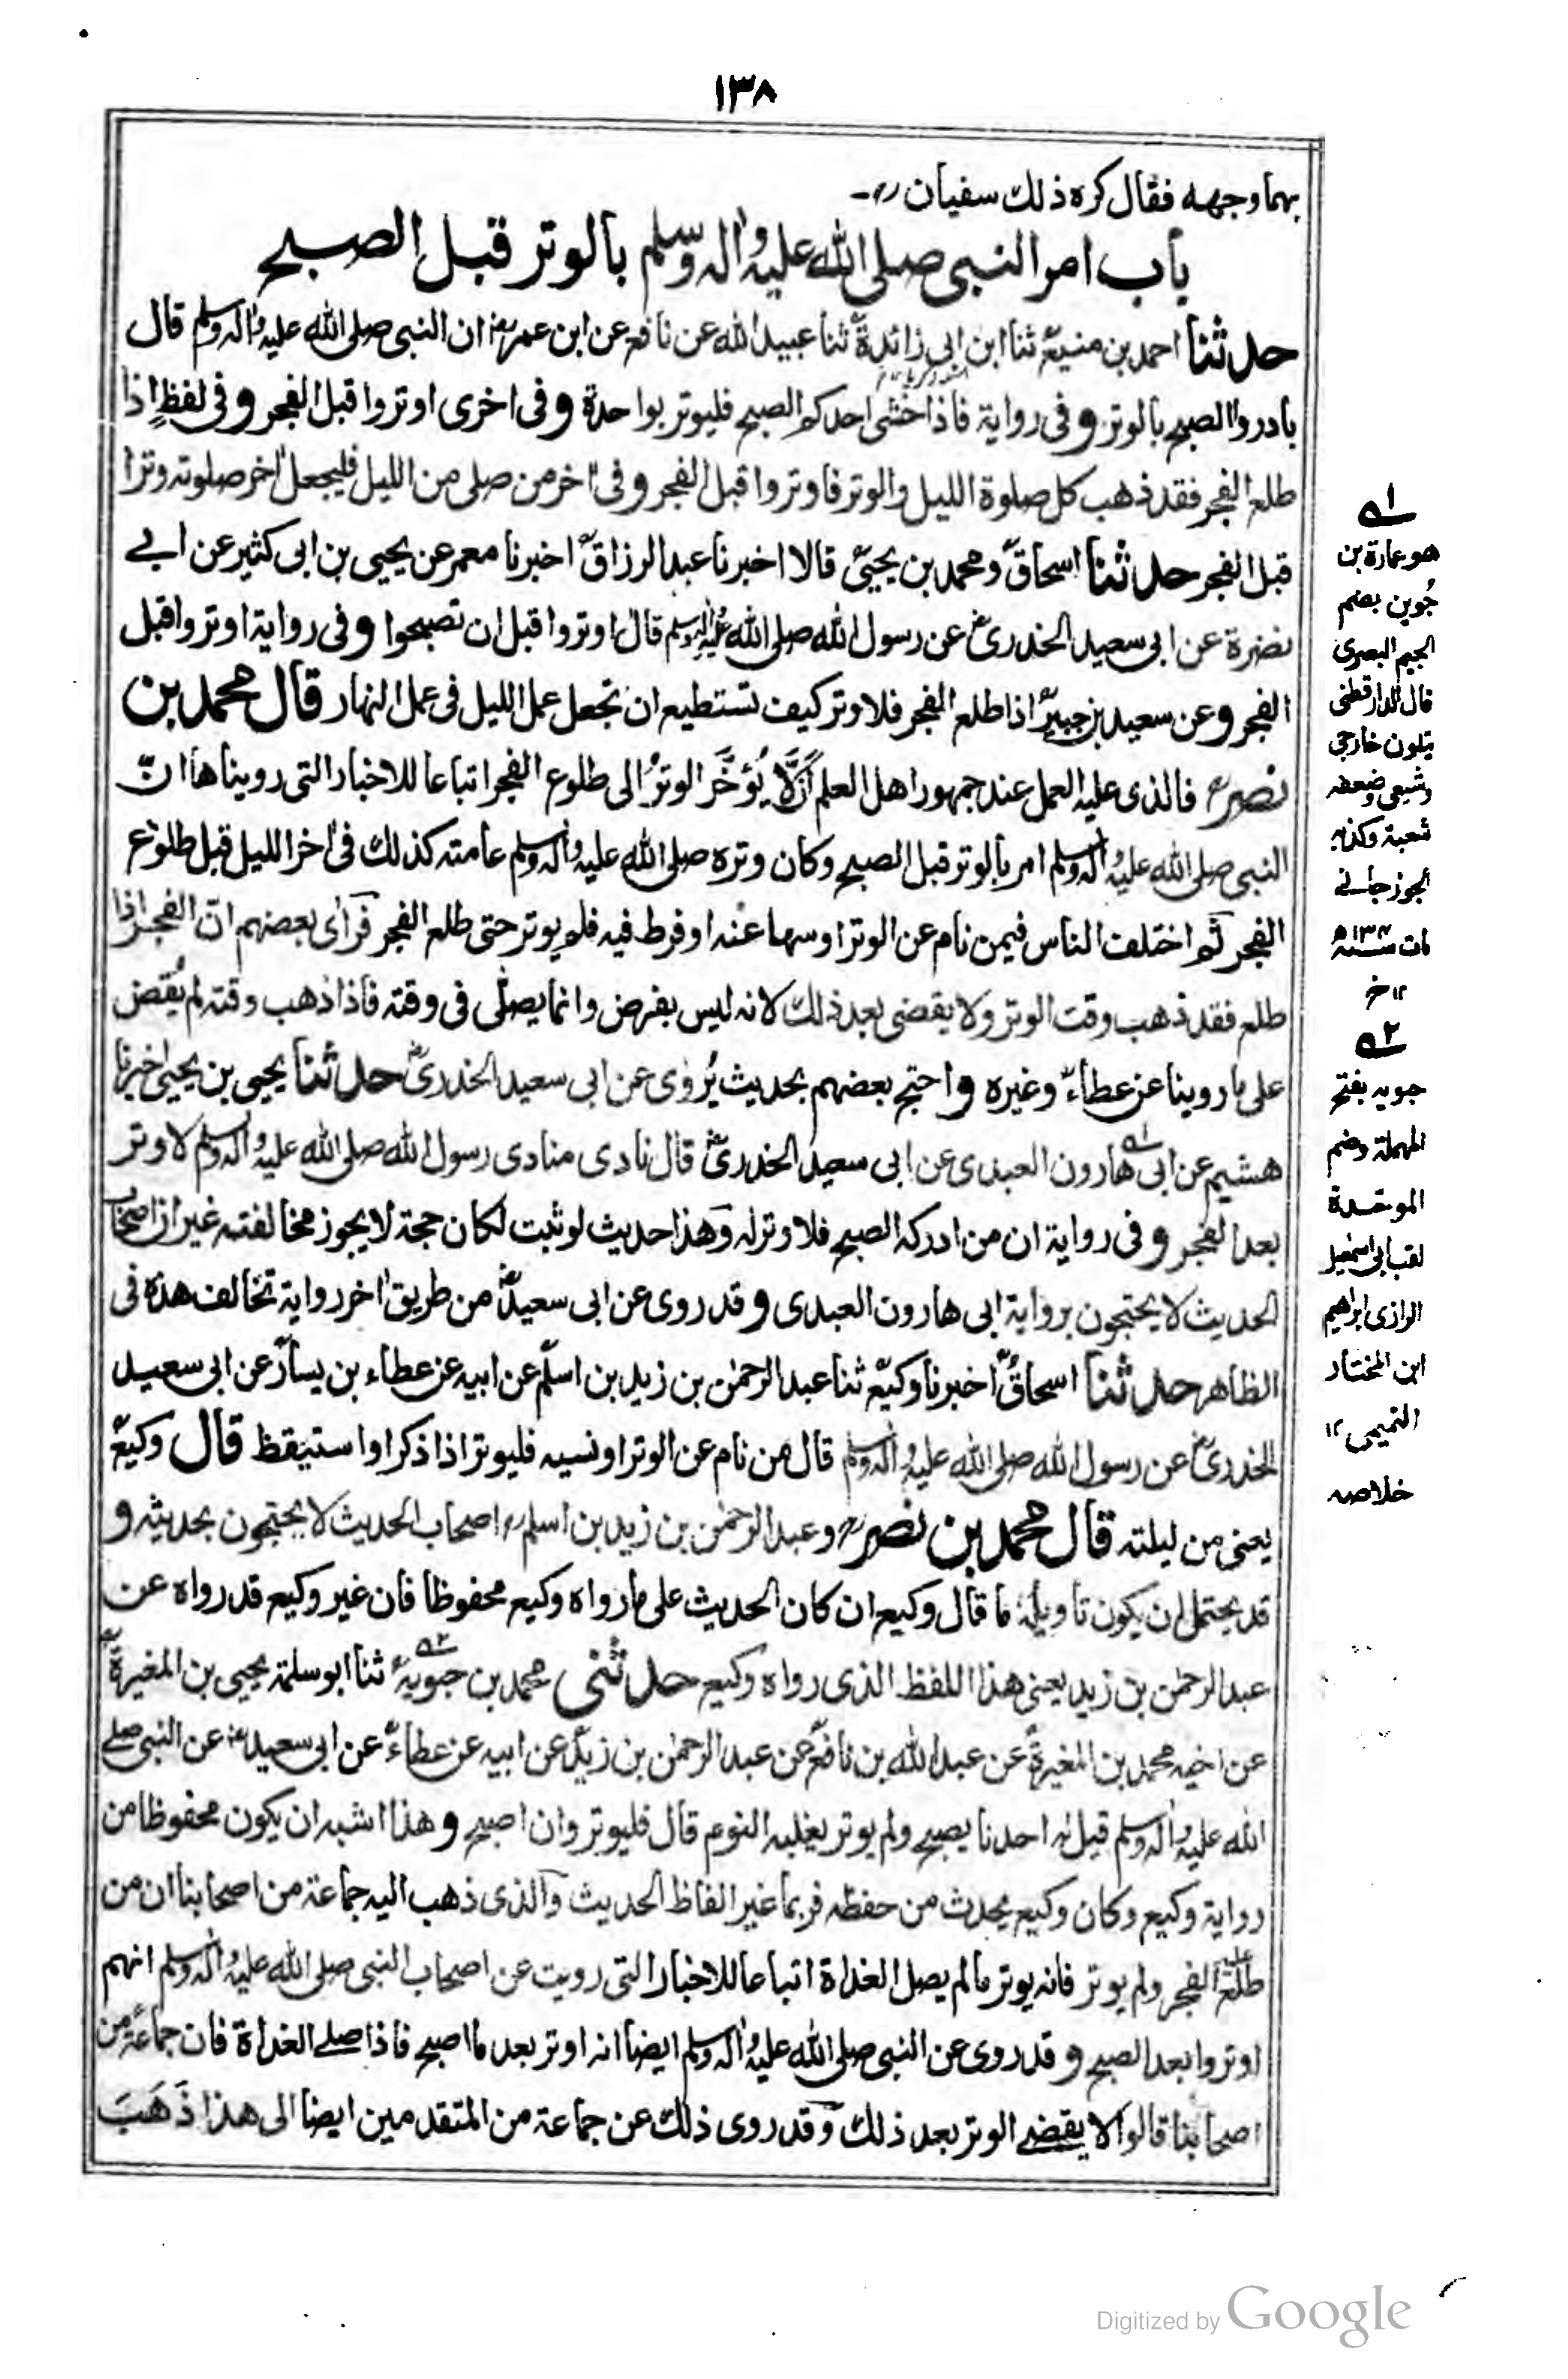 ١٣٨
بهما وجهه فقال كره ذلك سفيان رح -
باب امر النبى صلى الله عليه واله وسلم بالوتر قبل الصبح
حدثنا احمد بن منيع ثنا ابن ابى زائدة ثنا عبيد الله عن نافع عن ابن عمر رض ان النبى صلى الله عليه واله وسلم قال
بادروا الصبح بالوتر وفى رواية فاذا خشى احدكم الصبح فليوتر بواحدة وفى اخرى اوتروا قبل الفجر وفى لفظ اذا
طلع الفجر فقد ذهب كل صلوة الليل والوتر فاوتروا قبل الفجر وفى اخر من صلى من الليل فليجعل اخر صلوته وترا
قبل الفجر حدثنا اسحاق ومحمد بن يحيى قالا اخبرنا عبد الرزاق اخبرنا معمر عن يحيى بن ابى كثير عن ابى
نضرة عن ابى سعيد الخدرى رض عن رسول الله صلى الله عليه واله وسلم قال اوتروا قبل ان تصبحوا وفى رواية اوتروا قبل
الفجر وعن سعيد بن جبير اذا طلع الفجر فلا وتر كيف تستطيع ان تجعل عمل الليل فى عمل النهار قال محمد بن
نصر رح فالذى عليه العمل عند جمهور اهل العلم أَنْ لَّا يُؤَخَّر الوترُ الى طلوع الفجر اتباعا للاخبار التى رويناها انّ
النبى صلى الله عليه واله وسلم امر بالوتر قبل الصبح وكان وتره صلى الله عليه واله وسلم عامته كذلك فى اخر الليل قبل طلوع
الفجر ثم اختلف الناس فيمن نام عن الوتر او سها عنه او فرط فيه فلم يوتر حتى طلع الفجر فرأى بعضهم انّ الفجر اذا
طلع فقد ذهب وقت الوتر ولا يقضى بعد ذلك لانه ليس بفرض وانما يصلّٰى فى وقته فاذا ذهب وقته لم يُقض
على ما روينا عن عطاء وغيره واحتج بعضهم بحديث يُروٰى عن ابى سعيد الخدرى رض حدثنا يحيى بن يحيى اخبرنا
هشيم عن ابى هارون العبدى عن ابى سعيد الخدرى رض قال نادى منادى رسول الله صلى الله عليه واله وسلم لا وتر
بعد الفجر وفى رواية ان من ادركه الصبح فلا وتر له وهذا حديث لو ثبت لكان حجة لا يجوز مخالفته غير ان اصحاب
الحديث لا يحتجون برواية ابى هارون العبدى وقد روى عن ابى سعيد رض من طريق اخر رواية تخالف هذه فى
الظاهر حدثنا اسحاق اخبرنا وكيع ثنا عبد الرحمٰن بن زيد بن اسلم عن ابيه عن عطاء بن يسار عن ابى سعيد
الخدرى رض عن رسول الله صلى الله عليه واله وسلم قال من نام عن الوتر او نسيه فليوتر اذا ذكر او استيقظ قال وكيع
يعنى من ليلته قال محمد بن نصر رح وعبد الرحمٰن بن زيد بن اسلم رح اصحاب الحديث لا يحتجون بحديثه و
قد يحتمل ان يكون تاويله ما قال وكيع ان كان الحديث على ما رواه وكيع محفوظا فان غير وكيع قد رواه عن
عبد الرحمٰن بن زيد يعنى هذا اللفظ الذى رواه وكيع حدثنى محمد بن حبويه ثنا ابو سلمة يحيى بن المغيرة
عن اخيه محمد بن المغيرة عن عبد الله بن نافع عن عبد الرحمٰن بن زيد عن ابيه عن عطاء عن ابى سعيد رض عن النبى صلى
الله عليه واله وسلم قيل له احدنا يصبح ولم يوتر يغلبه النوم قال فليوتر وان اصبح وهذا اشبه ان يكون محفوظا من
رواية وكيع وكان وكيع يحدث من حفظه فربما غير الفاظ الحديث والذى ذهب اليه جماعة من اصحابنا ان من
طلع عليه الفجر ولم يوتر فانه يوتر ما لم يصل الغداة اتباعا للاخبار التى رويت عن اصحاب النبى صلى الله عليه واله وسلم انهم
اوتروا بعد الصبح وقد روى عن النبى صلى الله عليه واله وسلم ايضا انه اوتر بعد ما اصبح فاذا صلى الغداة فان جماعة من
اصحابنا قالوا لا يقضى الوتر بعد ذلك وقد روى ذلك عن جماعة من المتقدمين ايضا الى هذا ذَهَبَ
١ه
هو عمارة بن
جُوين بضم
الجيم البصرى
قال الدارقطنى
يتلون خارجى
وشيعى وضعفه
شعبة وكذبه
الجوزجانى
مات سنة ١٣٤ه
١٢ خ
٢ه
حبويه بفتح
المهملة وضم
الموحدة
لقب ابى اسمعيل
الرازى ابراهيم
ابن المختار
التميمى ١٢
خلاصه
Digitized by Google